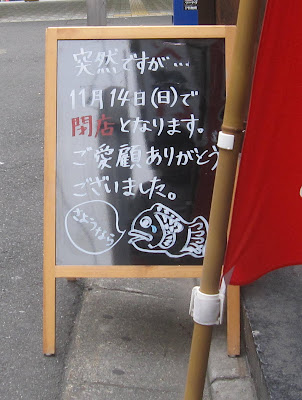 突然ですが…
11月14日(日)で
閉店となります。
ご愛顧ありがとう
ございました。
さようなら